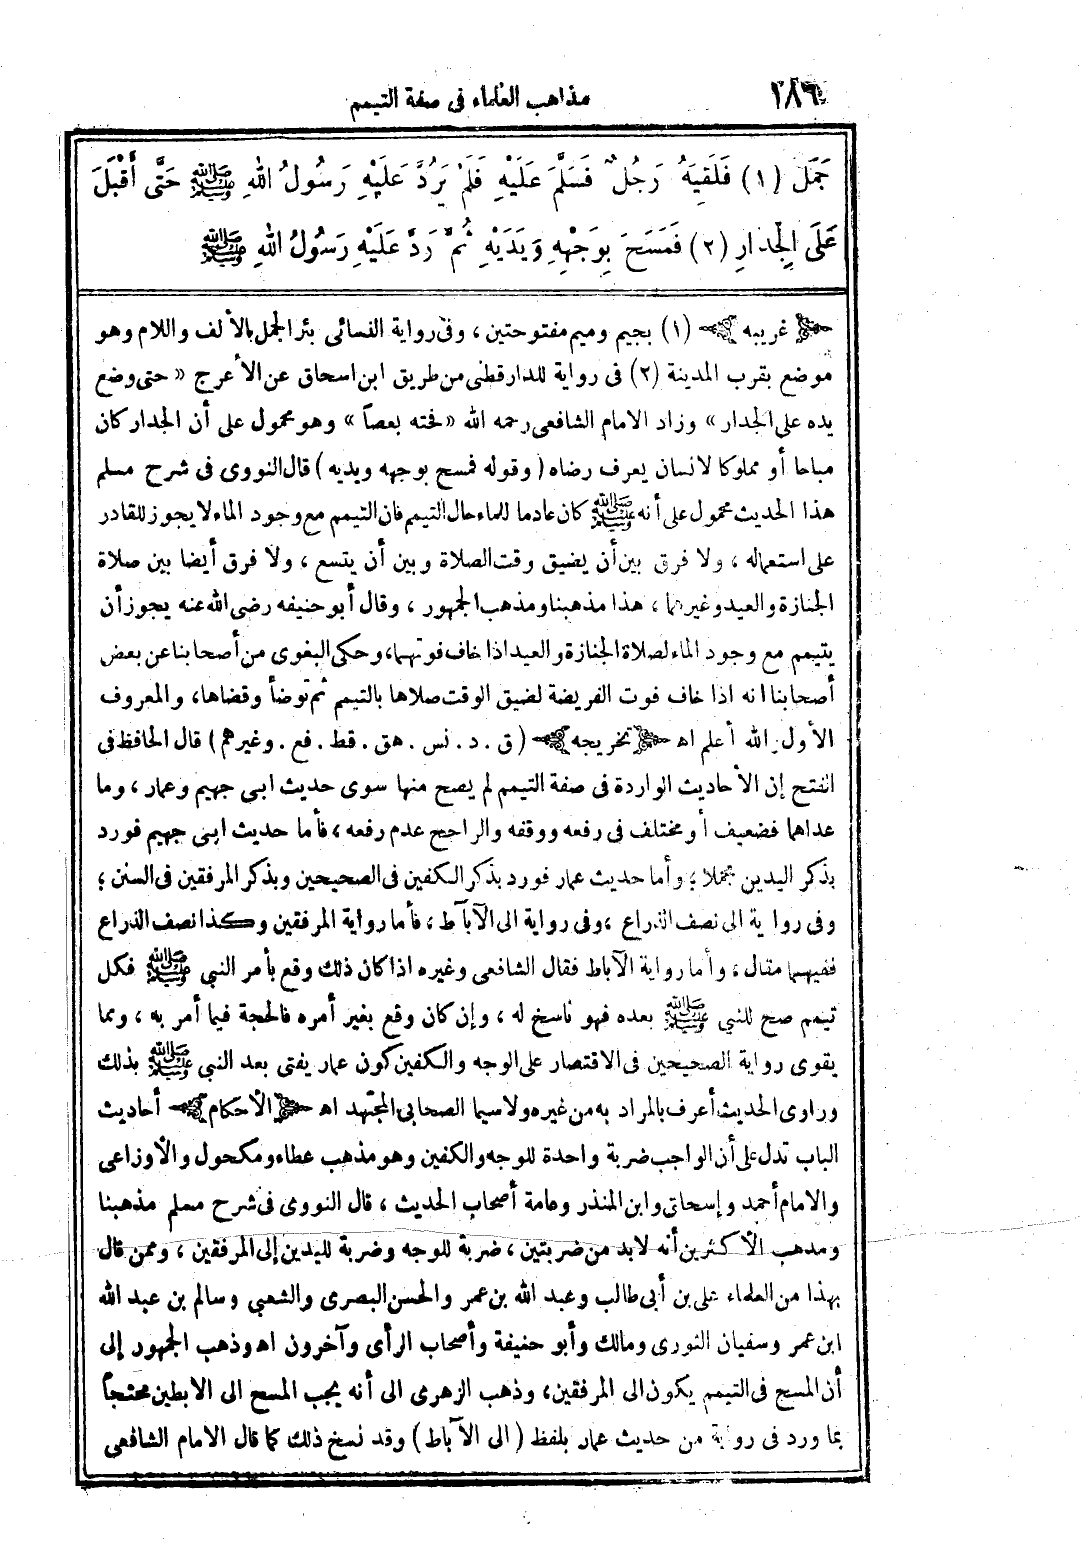 ١٨٦ مذاهب العلماء فى صفة التيمم
جَمَلَ (١) فَلَقِيَهُ رَجُلٌ فَسَلَّمَ عَلَيْهِ فَلَمْ يَرُدَّ عَلَيْهِ رَسُولُ اللهِ ﷺ حَتَّى أَقْبَلَ
عَلَى الْجِدَارِ (٢) فَمَسَحَ بِوَجْهِهِ وَيَدَيْهِ ثُمَّ رَدَّ عَلَيْهِ رَسُولُ اللهِ ﷺ
﴿غريبه﴾ (١) بجيم وميم مفتوحتين ، وفى رواية النسائى بئر الجمل بالألف واللام وهو
موضع بقرب المدينة (٢) فى رواية للدارقطنى من طريق ابن اسحاق عن الأعرج « حتى وضع
يده على الجدار » وزاد الامام الشافعى رحمه الله « فحته بعصاً » وهو محمول على أن الجدار كان
مباحا أو مملوكا لانسان يعرف رضاه ( وقوله فمسح بوجهه ويديه ) قال النووى فى شرح مسلم
هذا الحديث محمول على أنه ﷺ كان عادما للماء حال التيمم فان التيمم مع وجود الماء لا يجوز للقادر
على استعماله ، ولا فرق بين أن يضيق وقت الصلاة وبين أن يتسع ، ولا فرق أيضا بين صلاة
الجنازة والعيد وغيرهما ، هذا مذهبنا ومذهب الجمهور ، وقال أبو حنيفه رضى الله عنه يجوز أن
يتيمم مع وجود الماء لصلاة الجنازة والعيد اذا خاف فوتهما، وحكى البغوى من أصحابنا عن بعض
أصحابنا انه اذا خاف فوت الفريضة لضيق الوقت صلاها بالتيمم ثم توضأ وقضاها، والمعروف
الأول والله أعلم اه ﴿تخريجه﴾ ( ق . د . نس . هق . قط . فع . وغيرهم ) قال الحافظ فى
الفتح إن الأحاديث الواردة فى صفة التيمم لم يصح منها سوى حديث ابى جهيم وعمار ، وما
عداهما فضعيف أو مختلف فى رفعه ووقفه والراجح عدم رفعه ، فأما حديث ابى جهيم فورد
بذكر اليدين مجملا ؛ وأما حديث عمار فورد بذكر الكفين فى الصحيحين وبذكر المرفقين فى السنن ؛
وفى رواية الى نصف الذراع ، وفى رواية الى الآباط ، فأما رواية المرفقين وكذا نصف الذراع
ففيهما مقال ، وأما رواية الآباط فقال الشافعى وغيره اذا كان ذلك وقع بأمر النبي ﷺ فكل
تيمم صح للنبي ﷺ بعده فهو ناسخ له ، وإن كان وقع بغير أمره فالحجة فيما أمر به ، ومما
يقوى رواية الصحيحين فى الاقتصار على الوجه والكفين كون عمار يفتى بعد النبي ﷺ بذلك
وراوى الحديث أعرف بالمراد به من غيره ولا سيما الصحابى المجتهد اه ﴿الأحكام﴾ أحاديث
الباب تدل على أن الواجب ضربة واحدة للوجه والكفين وهو مذهب عطاء ومكحول والأوزاعى
والامام أحمد وإسحاق وابن المنذر وعامة أصحاب الحديث ، قال النووى فى شرح مسلم مذهبنا
ومذهب الأكثرين أنه لابد من ضربتين ، ضربة للوجه وضربة لليدين إلى المرفقين ، وممن قال
بهذا من العلماء على بن أبى طالب وعبد الله بن عمر والحسن البصرى والشعبي وسالم بن عبد الله
ابن عمر وسفيان الثورى ومالك وأبو حنيفة وأصحاب الرأى وآخرون اه وذهب الجمهور إلى
أن المسح فى التيمم يكون الى المرفقين، وذهب الزهرى الى أنه يجب المسح الى الابطين محتجاً
بما ورد فى رواية من حديث عمار بلفظ ( الى الآباط ) وقد نسخ ذلك كما قال الامام الشافعى